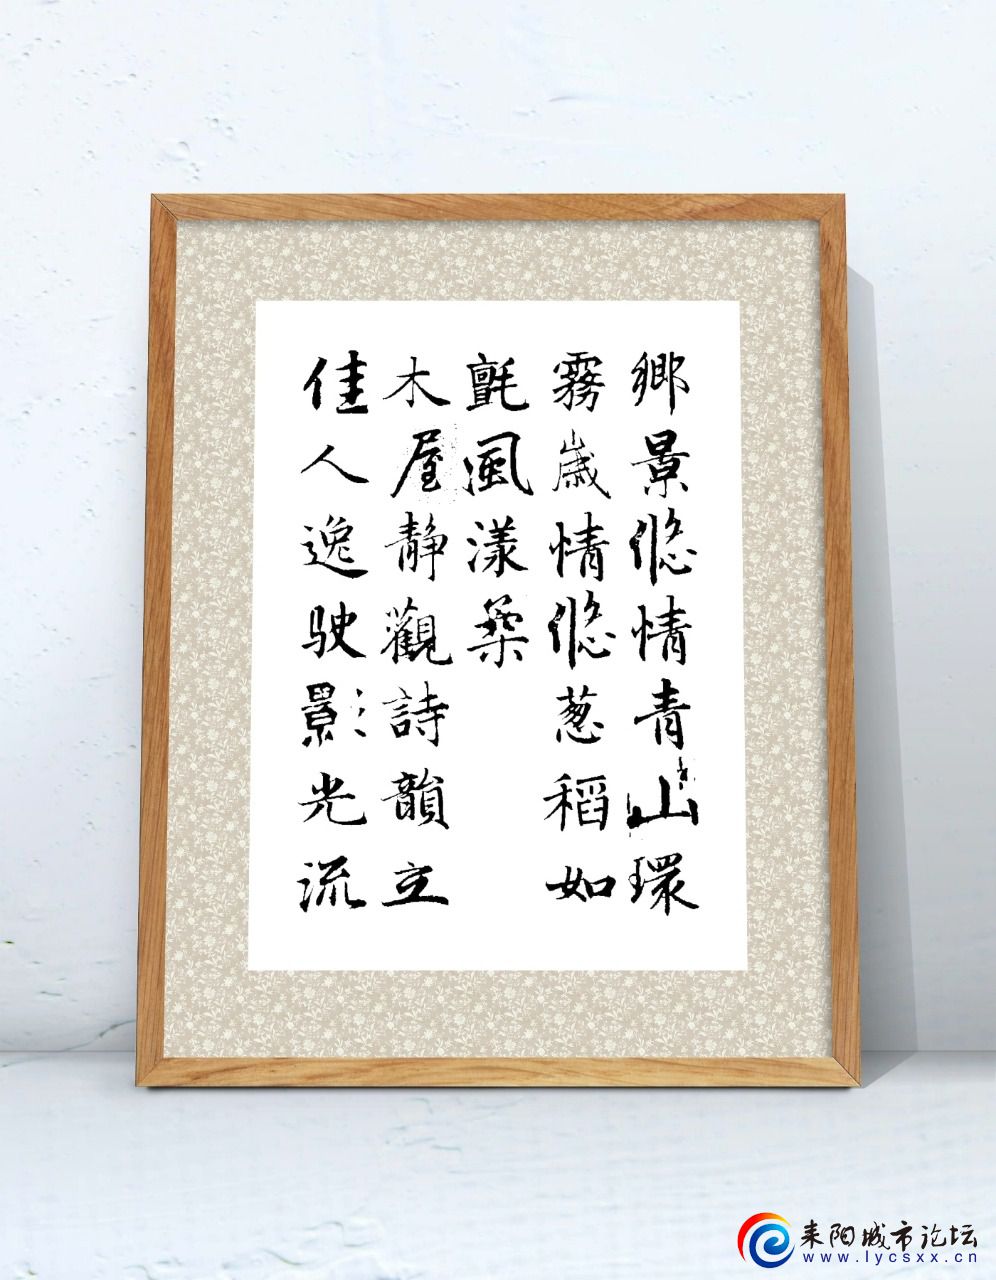 鄉景悠情青山環
霧歲情悠葱稻如
氈風漾築
木屋静觀詩韻立
佳人逸駛影光流
耒阳城市论坛
www.lycsxx.cn